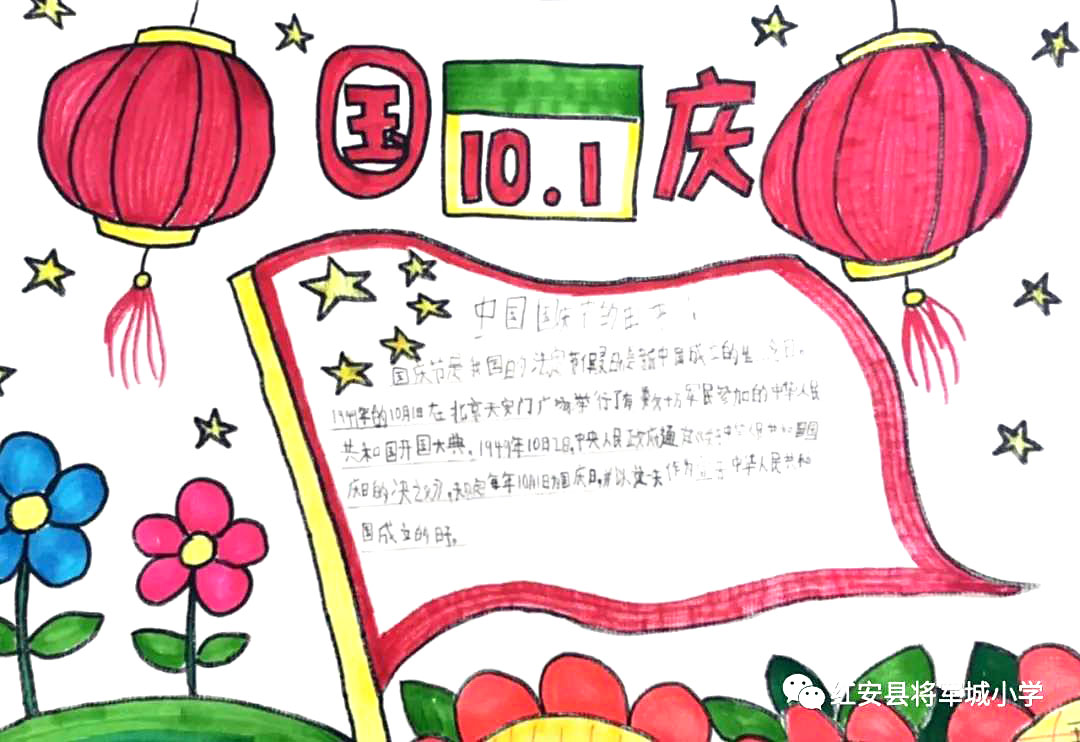 国 10.1 庆
中国国庆节的由来
国庆节是我国的法定节假日是新中国成立的
1949年的10月1日在北京天安门广场举行了有数十万军民参加的中华人民
共和国开国大典。1949年10月2日,中央人民政府通
庆日的决 ,规定每年10月1日为国庆日,并以这一天作为 中华人民共和
国成立的日子。
红安县将军城小学